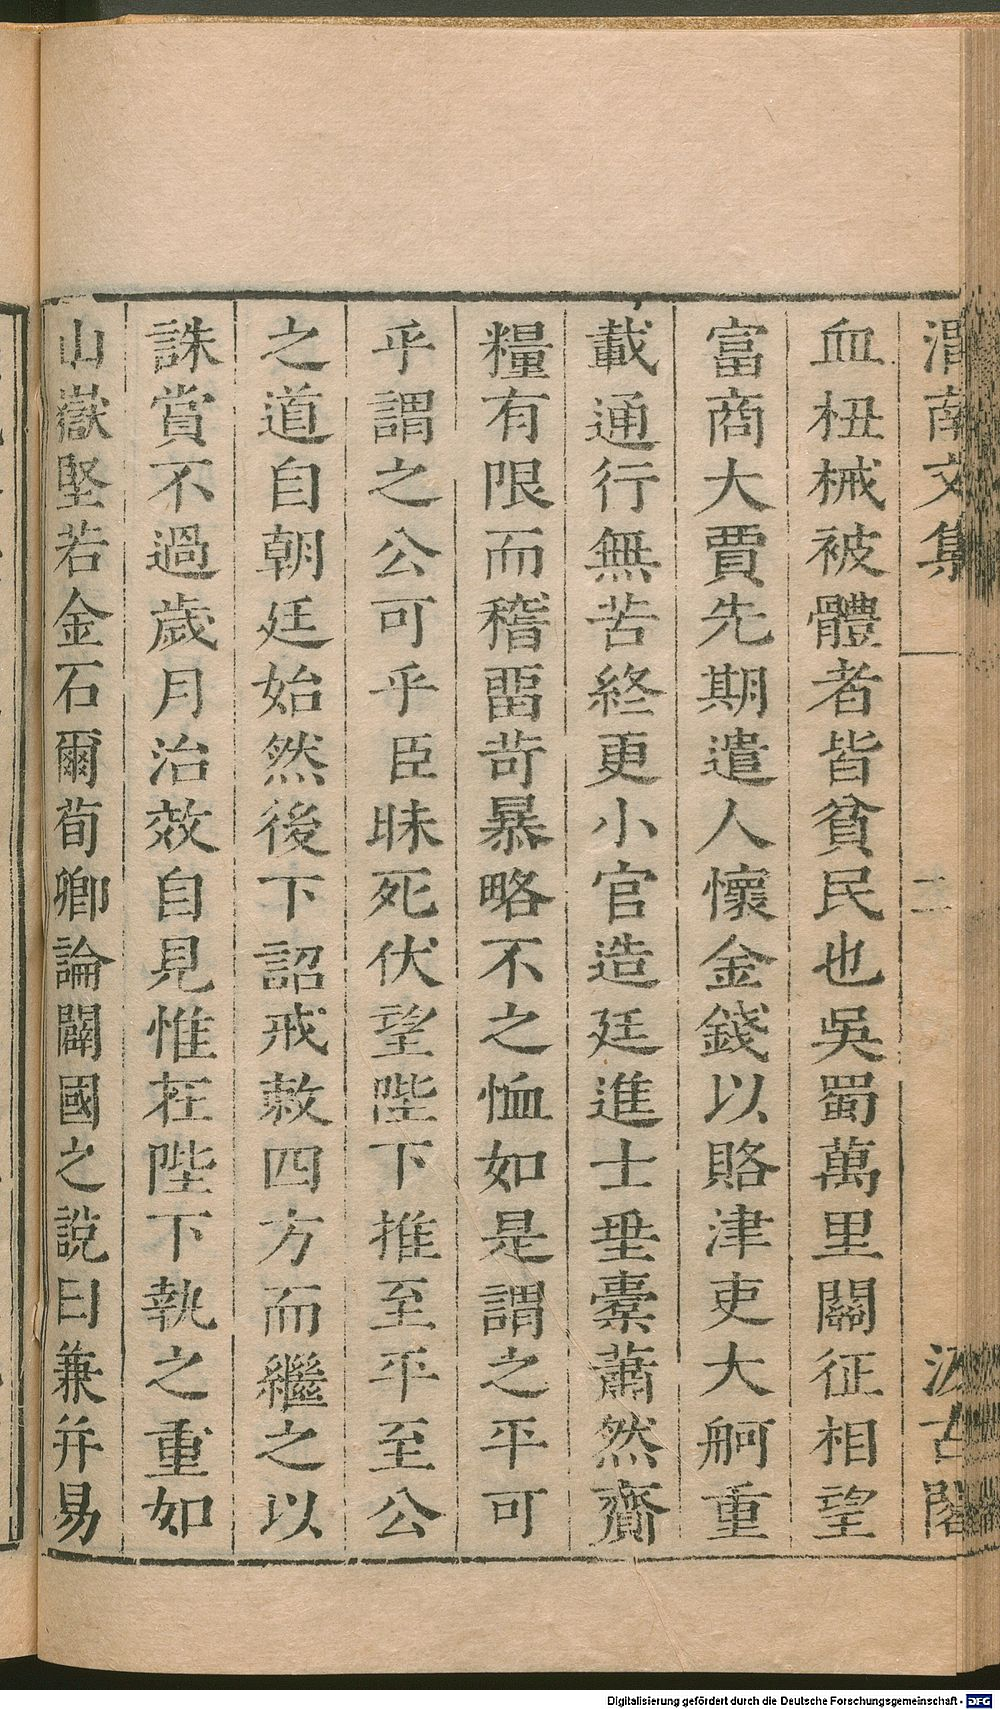 渭南文集 二 汲古閣
血杻械被體者皆貧民也吳蜀萬里關征相望
富商大賈先期遣人懷金錢以賂津吏大舸重
載通行無苦終更小官造廷進士垂橐蕭然齎
糧有限而稽畱苛暴略不之恤如是謂之平可
乎謂之公可乎臣昧死伏望陛下推至平至公
之道自朝廷始然後下詔戒敕四方而繼之以
誅賞不過歲月治效自見惟在陛下執之重如
山嶽堅若金石爾荀卿論闢國之說曰兼并易
Digitalisierung gefördert durch die Deutsche Forschungsgemeinschaft - DFG